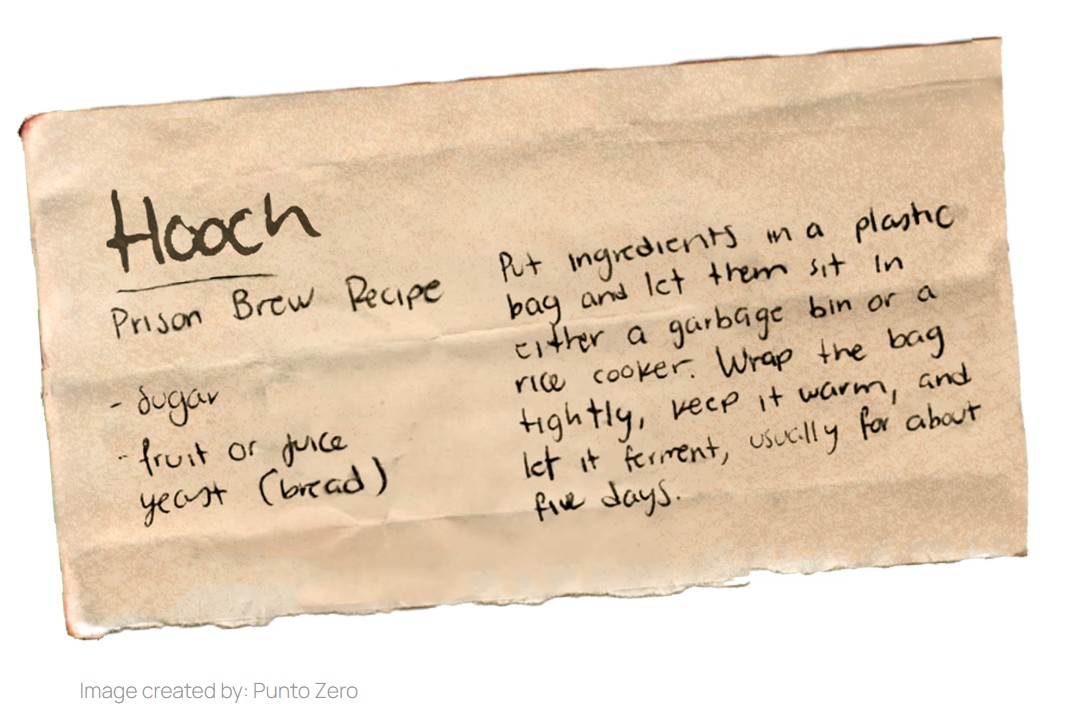 Hooch
Prison Brew Recipe
- Sugar
- fruit or juice
yeast (bread)
Put ingredients in a plastic
bag and let them sit in
either a garbage bin or a
rice cooker. Wrap the bag
tightly, keep it warm, and
let it ferment, usually for about
five days.
Image created by: Punto Zero